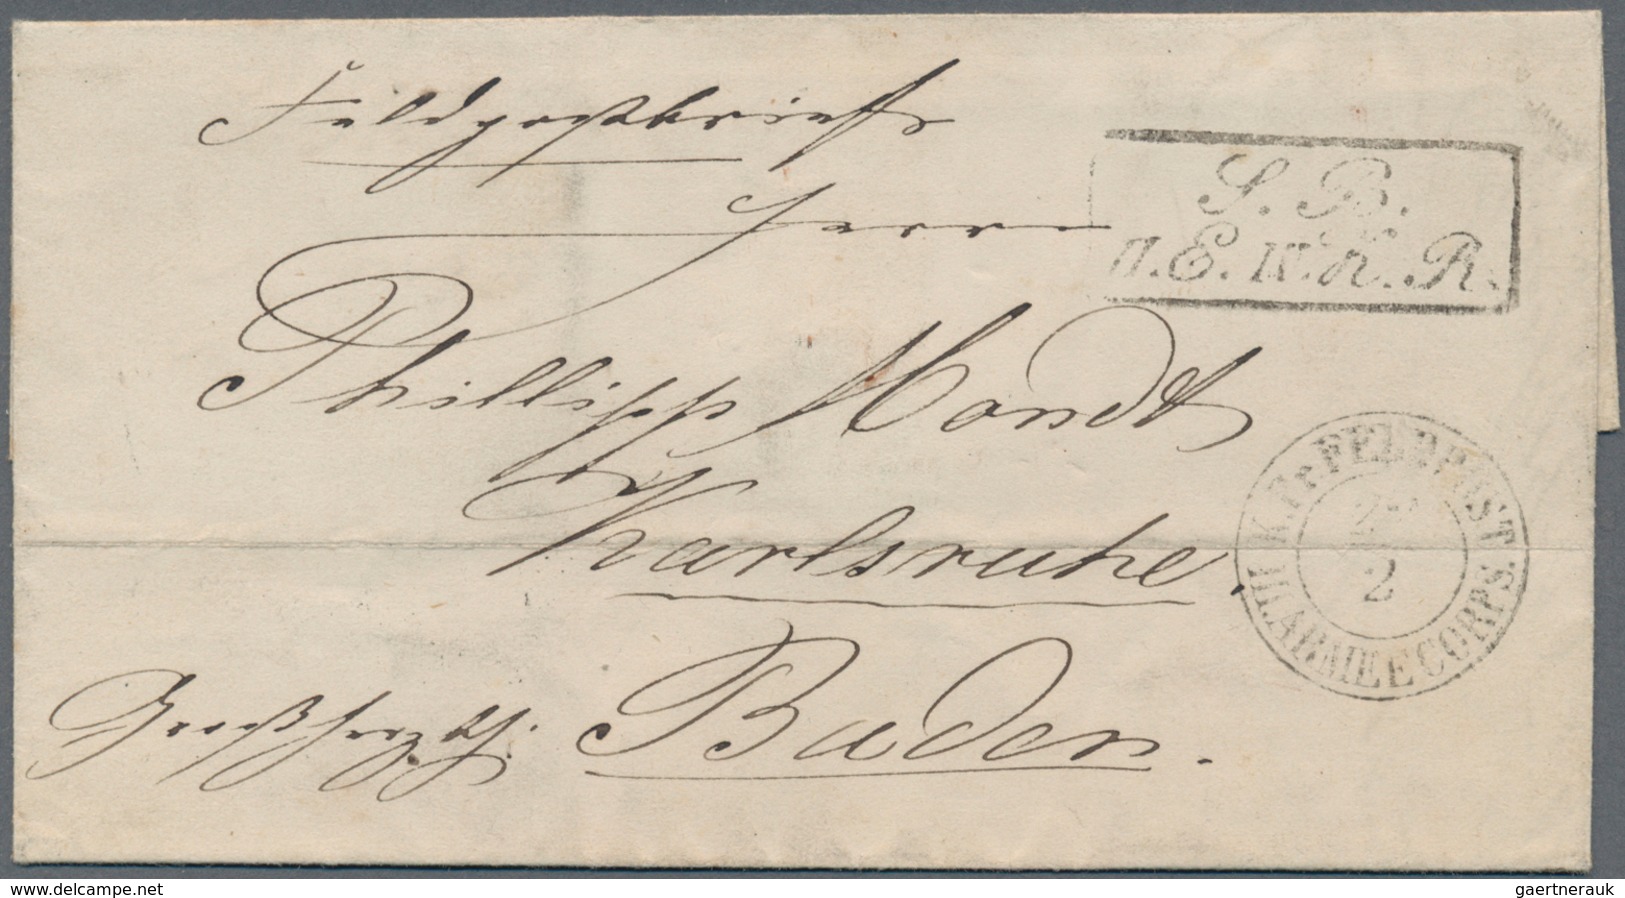 Feldpostbrief
Herrn
S. B.
n. E. w. K. R.
Phillipp Mondt
Karlsruhe.
K. Pr. FELDPOST
2
III. ARMEE CORPS.
Großherzth. Baden.
www.delcampe.net
gaertnerauk